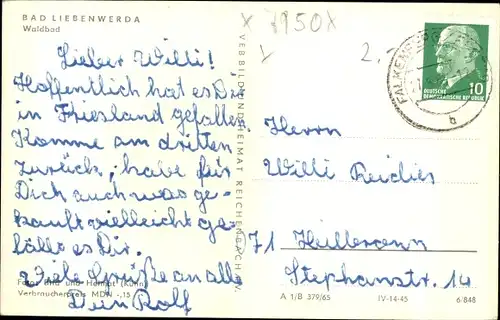 BAD LIEBENWERDA
Waldbad
7950
2.-
Lieber Willi!
Hoffentlich hat es Dir
in Friesland gefallen.
Komme am dritten
zurück, habe für
Dich auch was ge-
kauft vielleicht ge-
fällt es Dir.
Viele Grüße an alle
Dein Rolf
Foto: Bild und Heimat (Kühn)
Verbraucherpreis MDN -,15
VEB BILD UND HEIMAT REICHENBACH
DEUTSCHE
DEMOKRATISCHE REPUBLIK
10
FALKENBERG
b
Herrn
Willi
71 Heilbronn
Stephanstr. 14
A 1/B 379/65 IV-14-45 6/848